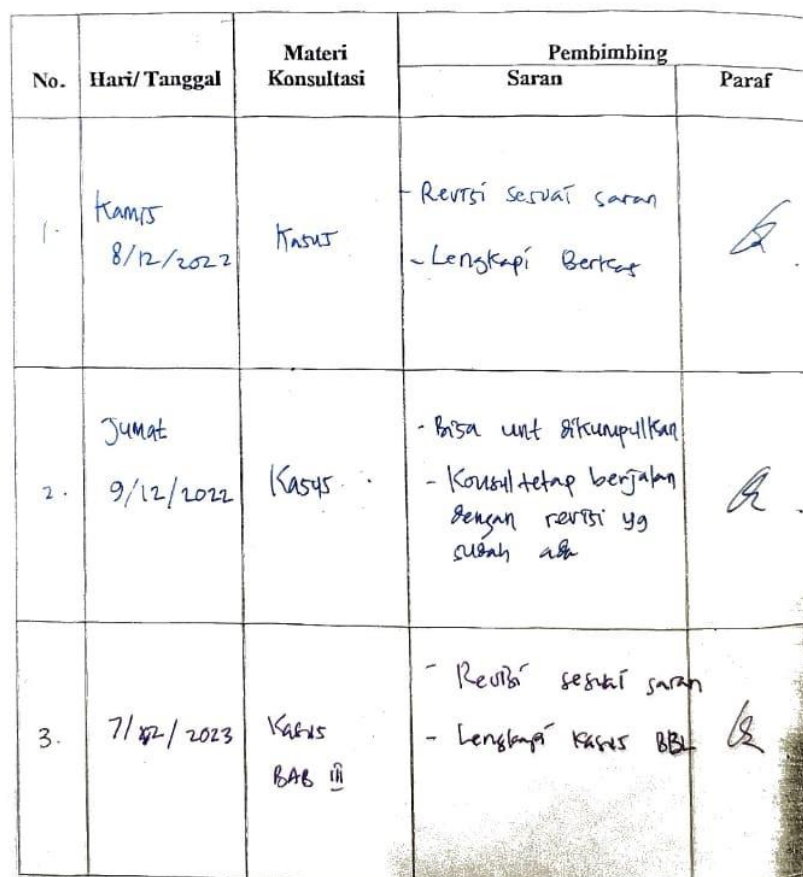 No.
Hari/ Tanggal
Materi
Konsultasi
Pembimbing
Saran
Paraf
1.
Kamis
8/12/2022
Kasus
- Revisi sesuai saran
- Lengkapi Berkas
2.
Jumat
9/12/2022
Kasus
- Bisa unt dikumpulkan
- Konsul tetap berjalan
dengan revisi yg
sudah ada
3.
7/ / 2023
Kasus
BAB III
- Revisi sesuai saran
- Lengkapi Kasus BBL